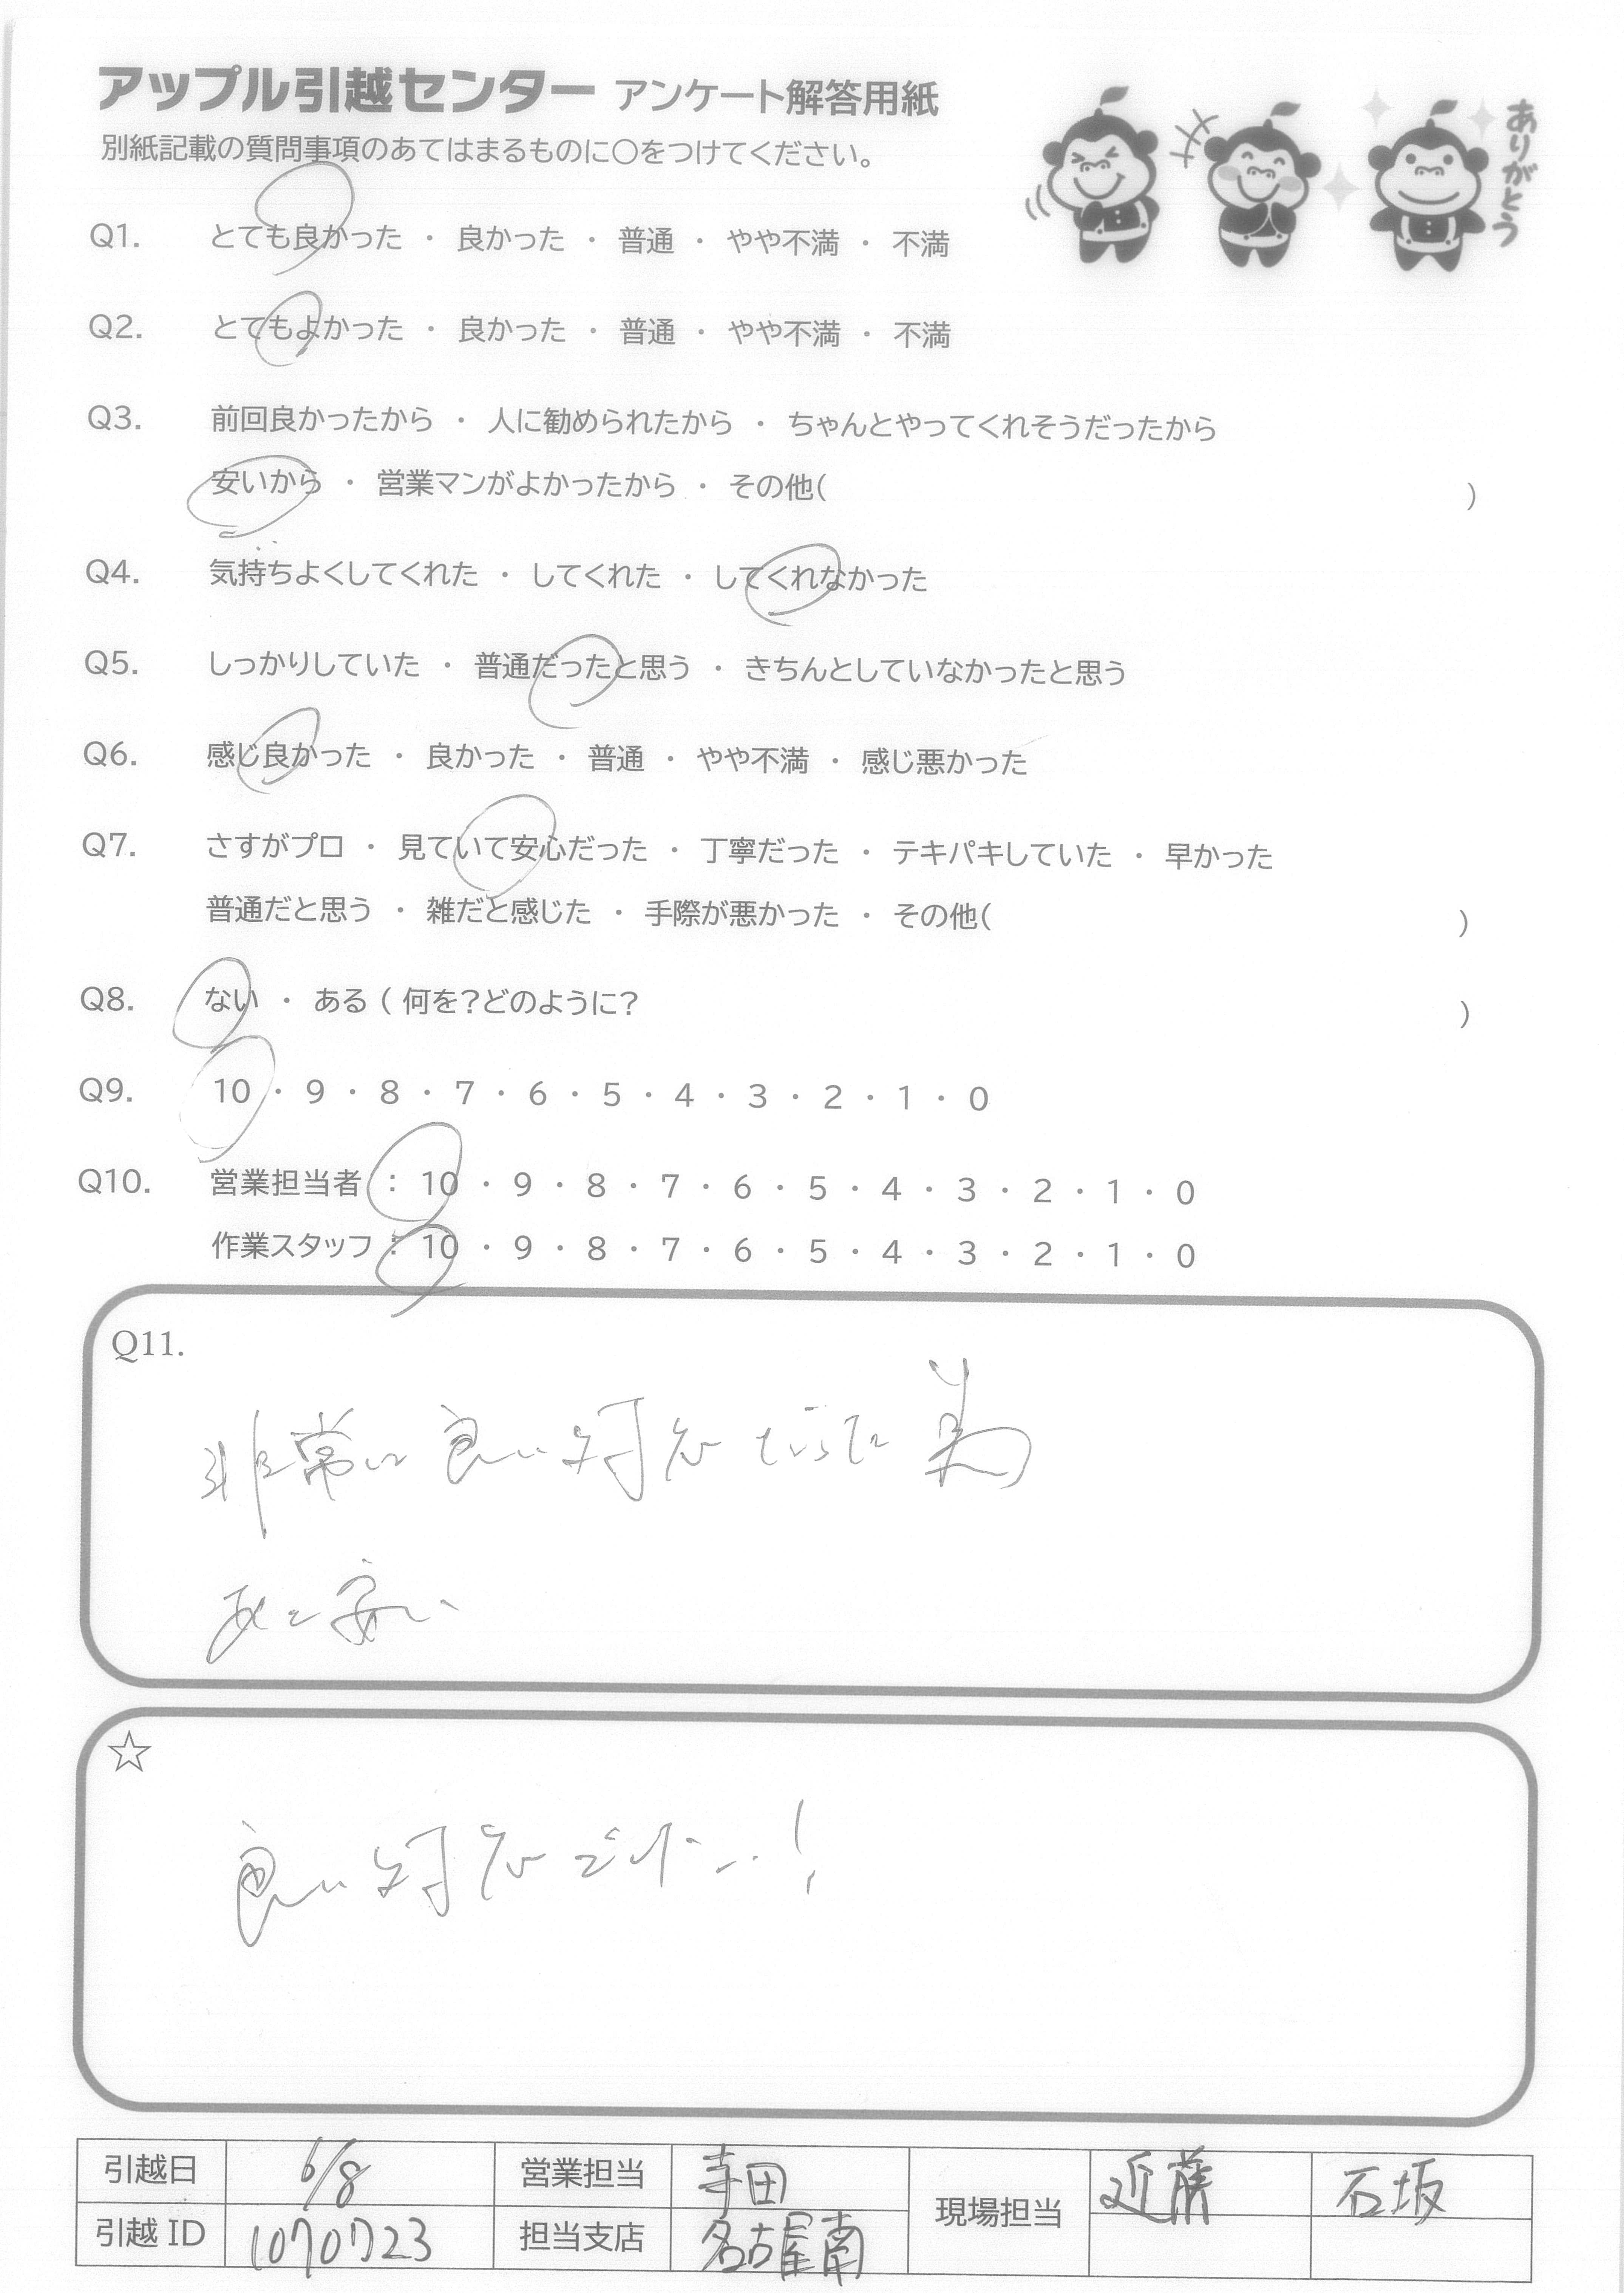 アップル引越センター アンケート解答用紙
別紙記載の質問事項のあてはまるものに○をつけてください。
ありがとう
Q1. とても良かった ・ 良かった ・ 普通 ・ やや不満 ・ 不満
Q2. とてもよかった ・ 良かった ・ 普通 ・ やや不満 ・ 不満
Q3. 前回良かったから ・ 人に勧められたから ・ ちゃんとやってくれそうだったから
安いから ・ 営業マンがよかったから ・ その他( )
Q4. 気持ちよくしてくれた ・ してくれた ・ してくれなかった
Q5. しっかりしていた ・ 普通だったと思う ・ きちんとしていなかったと思う
Q6. 感じ良かった ・ 良かった ・ 普通 ・ やや不満 ・ 感じ悪かった
Q7. さすがプロ ・ 見ていて安心だった ・ 丁寧だった ・ テキパキしていた ・ 早かった
普通だと思う ・ 雑だと感じた ・ 手際が悪かった ・ その他( )
Q8. ない ・ ある ( 何を?どのように? )
Q9. 10 ・ 9 ・ 8 ・ 7 ・ 6 ・ 5 ・ 4 ・ 3 ・ 2 ・ 1 ・ 0
Q10. 営業担当者 : 10 ・ 9 ・ 8 ・ 7 ・ 6 ・ 5 ・ 4 ・ 3 ・ 2 ・ 1 ・ 0
作業スタッフ : 10 ・ 9 ・ 8 ・ 7 ・ 6 ・ 5 ・ 4 ・ 3 ・ 2 ・ 1 ・ 0
Q11.
非常に良い対応だった為
安い
☆
良い対応でした!
引越日 6/8 営業担当 寺田 現場担当 近藤 石坂
引越ID 1070723 担当支店 名古屋南